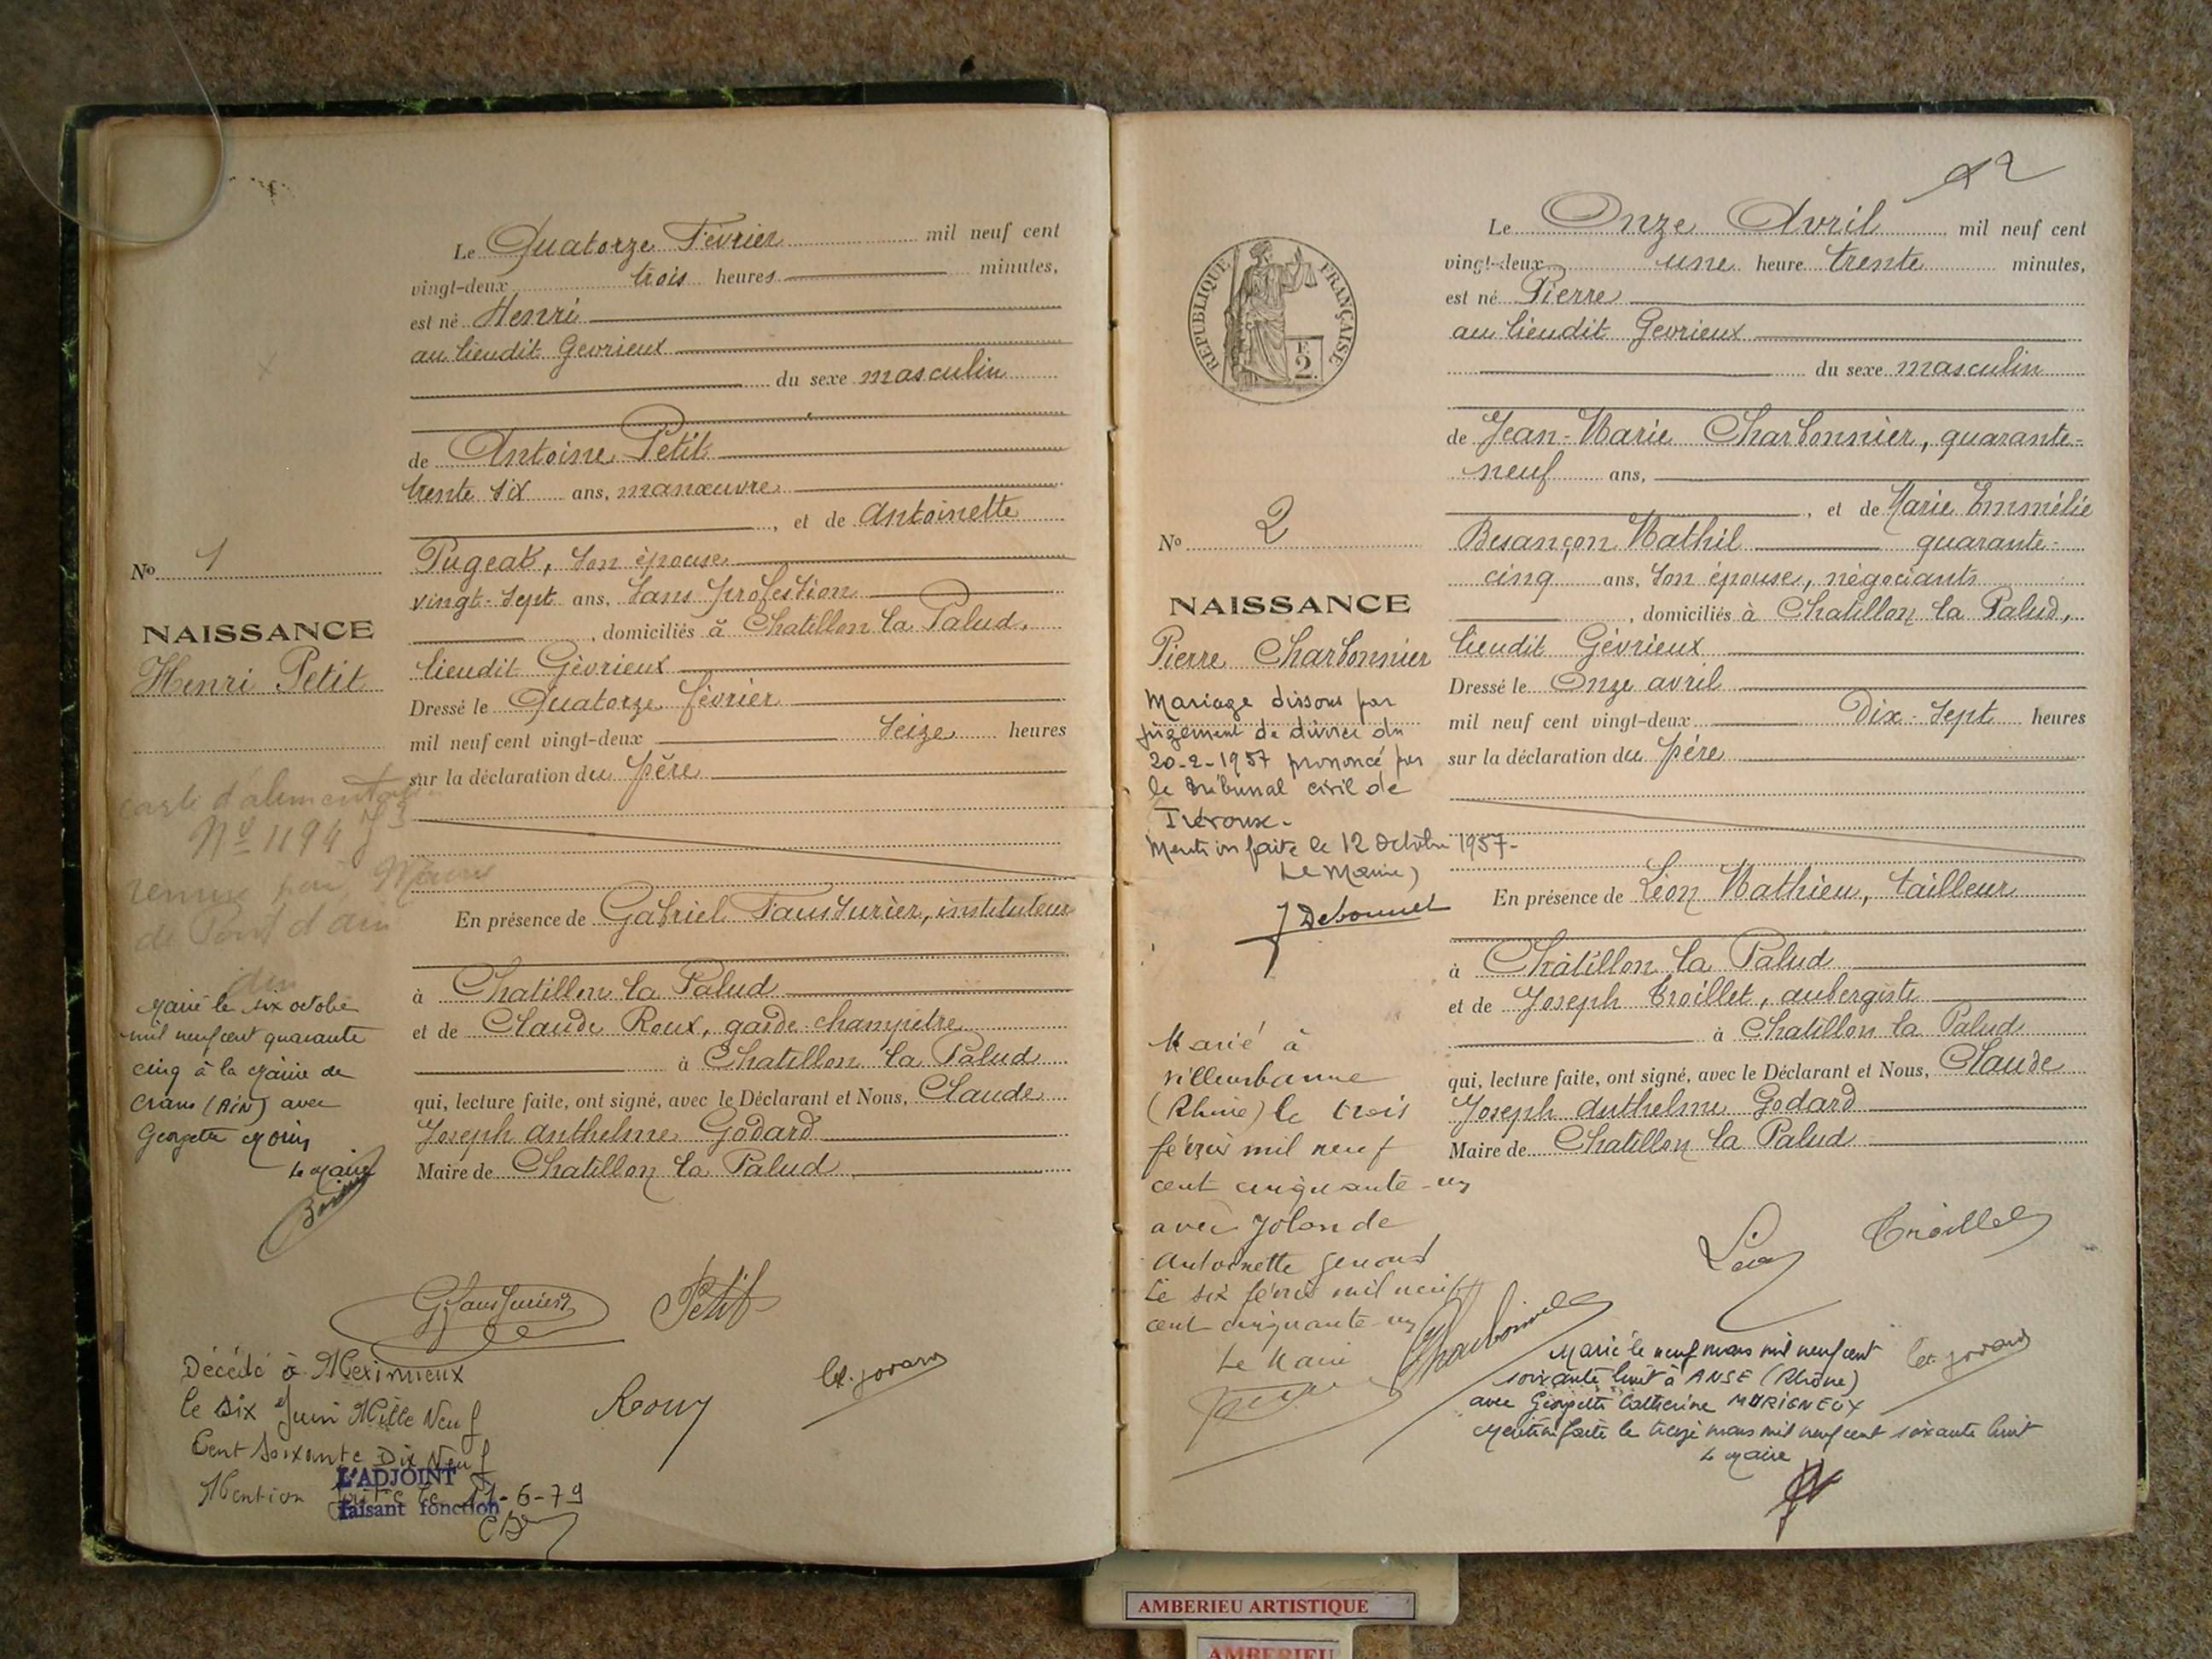 Le Quatorze Février mil neuf cent
vingt-deux trois heures minutes,
est né Henri
au lieudit Gevrieux
du sexe masculin
de Antoine Petit
trente six ans, manœuvre
, et de Antoinette
Pugeat, son épouse
vingt-sept ans, sans profession
, domiciliés à Chatillon la Palud,
lieudit Gévrieux
Dressé le Quatorze février
mil neuf cent vingt-deux seize heures
sur la déclaration du père
En présence de Gabriel Fausurier, instituteur
à Chatillon la Palud
et de Claude Roux, garde-champetre
à Chatillon la Palud
qui, lecture faite, ont signé, avec le Déclarant et Nous, Claude
Joseph Anthelme Godard
Maire de Chatillon la Palud
No 1
NAISSANCE
Henri Petit
carte d'alimentation
No 1194 J3
remise par Mairie
de Pont d'ain
Marié le six octobre
mil neuf cent quarante
cinq à la Mairie de
Crans (AIN) avec
Georgette
Le Maire
Petit
Roux
Décédé à Meximieux
le six Juin Mille Neuf
Cent soixante Dix Neuf
Mention faite le 11-6-79
L'ADJOINT
faisant fonction
12
Le Onze Avril mil neuf cent
vingt-deux une heure trente minutes,
est né Pierre
au lieudit Gevrieux
du sexe masculin
de Jean-Marie Charbonnier, quarante-
neuf ans,
, et de Marie Emmélie
Besançon Mathil quarante-
cinq ans, son épouse, négociants
, domiciliés à Chatillon la Palud,
lieudit Gévrieux
Dressé le Onze avril
mil neuf cent vingt-deux Dix-sept heures
sur la déclaration du père
En présence de Léon Mathieu, tailleur
à Châtillon la Palud
et de Joseph Troillet, aubergiste
à Chatillon la Palud
qui, lecture faite, ont signé, avec le Déclarant et Nous, Claude
Joseph Anthelme Godard
Maire de Chatillon la Palud
REPUBLIQUE FRANÇAISE
F
2.
No 2
NAISSANCE
Pierre Charbonnier
Mariage dissous par
jugement de divorce du
20-2-1957 prononcé par
le tribunal civil de
Trévoux.
Mention faite le 12 Octobre 1957-
Le Maire,
J Debonnet
Marié à
Villeurbanne
(Rhône) le trois
février mil neuf
cent cinquante-un
avec Yolande
Antoinette Genoud
Le six février mil neuf
cent cinquante-un
Le Maire
Charbonnier
Léon
Troillet
Marié le neuf mars mil neuf cent
soixante huit à ANSE (Rhône)
avec Georgette Catherine MORIGNEUX
Mention faite le treize mars mil neuf cent soixante huit
Le Maire
AMBERIEU ARTISTIQUE
AMBERIEU